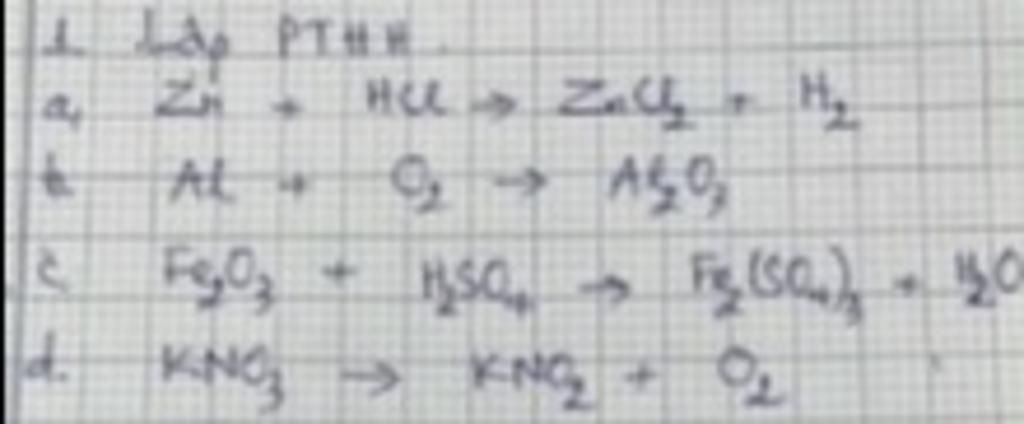 1. Lập PTHH.
a, Zn + HCl → ZnCl₂ + H₂
b. Al + O₂ → Al₂O₃
c. Fe₂O₃ + H₂SO₄ → Fe₂(SO₄)₃ + H₂O
d. KNO₃ → KNO₂ + O₂